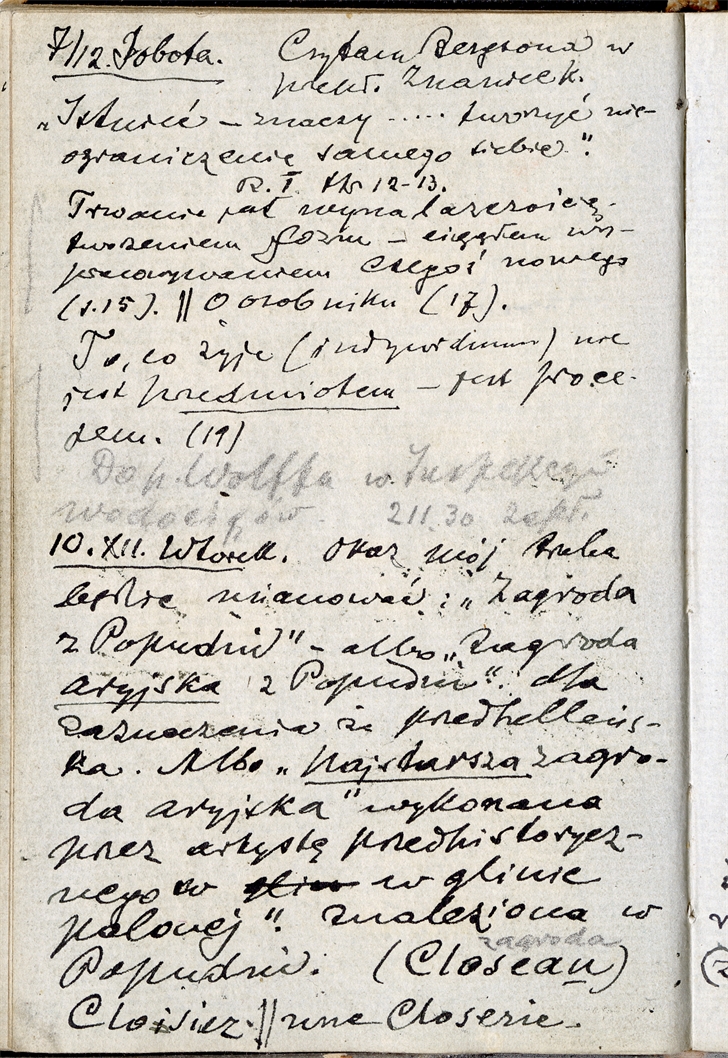 7/12. Sobota. Czytam Bergsona w
przekł. Znanieck.
"Istnieć – znaczy ..... tworzyć nie-
ograniczenie samego siebie".
R. I str 12-13.
Trwanie jest wynalazczością,
tworzeniem form – ciągłem wy-
pracowywaniem czegoś nowego
(s.15). || O osobniku (17).
To, co żyje (indywiduum) nie
jest przedmiotem – jest proce-
sem. (19)
Do p. Wolffa w Inspekcyi
wodociągów. 211.30
10.XII. Wtorek. Okaz mój trzeba
będzie mianować: "Zagroda
z Popudni" – albo "Zagroda
aryjska z Popudni". dla
zaznaczenia że przedhelleńs-
ka. Albo "Najstarsza zagro-
da aryjska" wykonana
przez artystę przedhistorycz-
nego w glin w glinie
palonej". Znaleziona w
zagroda
Popudni. (Closeau)
Cloisiez || une Closerie.